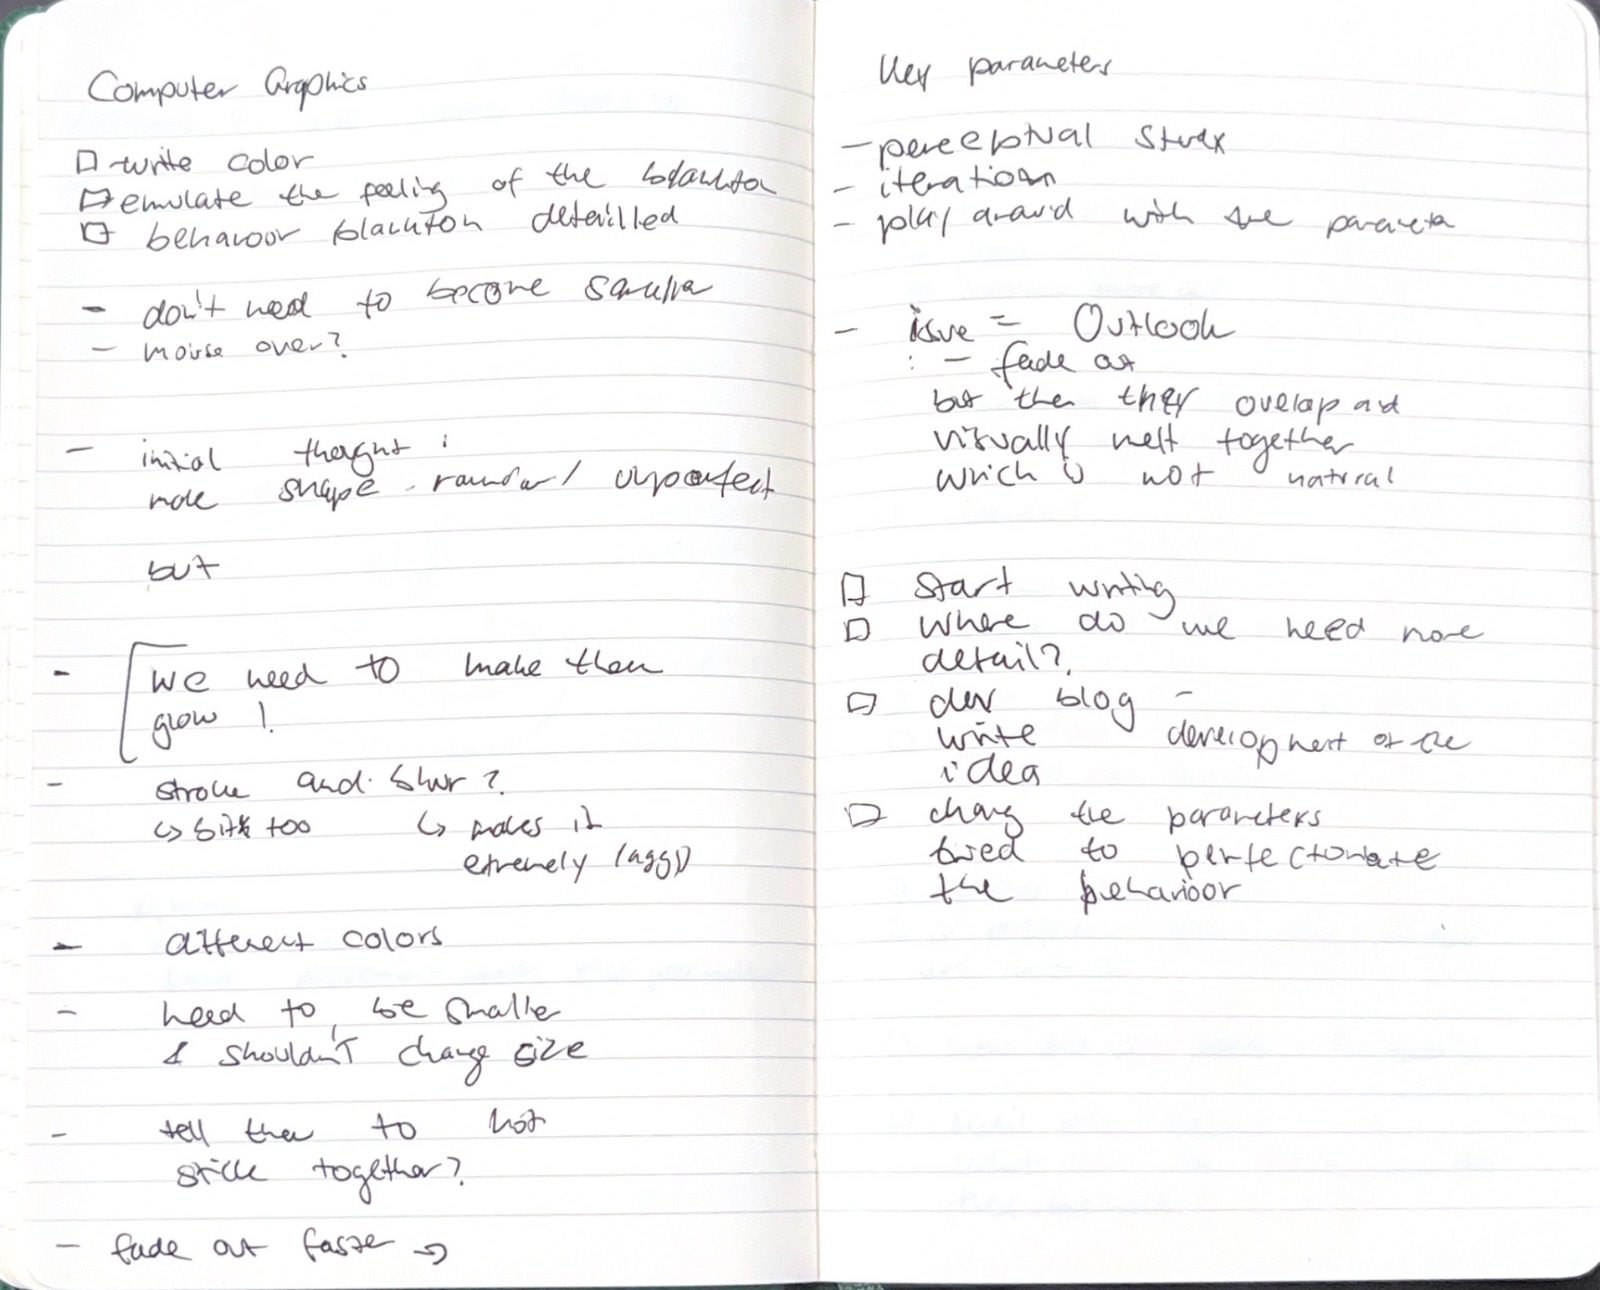 Computer Graphics
□ write color
□ emulate the feeling of the
□ behavoor detailled
- don't need to become
- mouse over?
- initial thought :
shape unperfect
but
- we need to make them
glow !
- stroke and blur ?
↳ too ↳ makes it
etremely (laggy)
- different colors
- need to be smaller
& shouldn't change size
- tell them to not
stick together?
- fade out faster
Key parameters
- perceptual
- iteration
- play around with the
- issue = Outlook
: - fade out
but then they overlap and
visually melt together
which is not natural
□ start writing
□ where do we need more
detail?
□ dev blog -
write development of the
idea
□ the parameters
to perfectionate
the behavioor